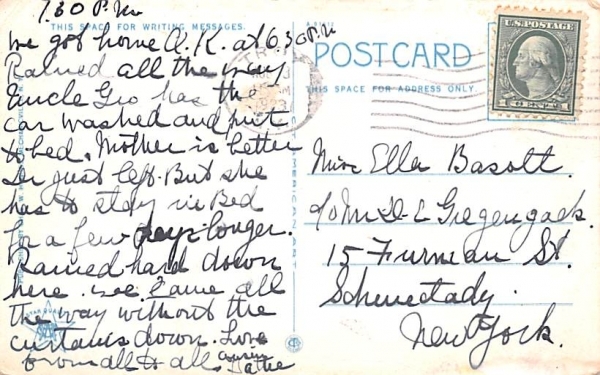 7.30 P.M.
THIS SPACE FOR WRITING MESSAGES.
We got home O.K. at 6.30 P.M
Rained all the way
Uncle Geo has the
car washed and put
to bed. Mother is better
Dr just left. But she
has to stay in Bed
for a few days longer.
Rained hard down
here. we Came all
the way without the
curtains down. Love
from all to all
POSTCARD
THIS SPACE FOR ADDRESS ONLY.
U.S. POSTAGE
1 CENT 1
Miss Ella Basolt.
c/o Mr D-C Gregengack.
15 Furman St.
Schenectady.
New York.